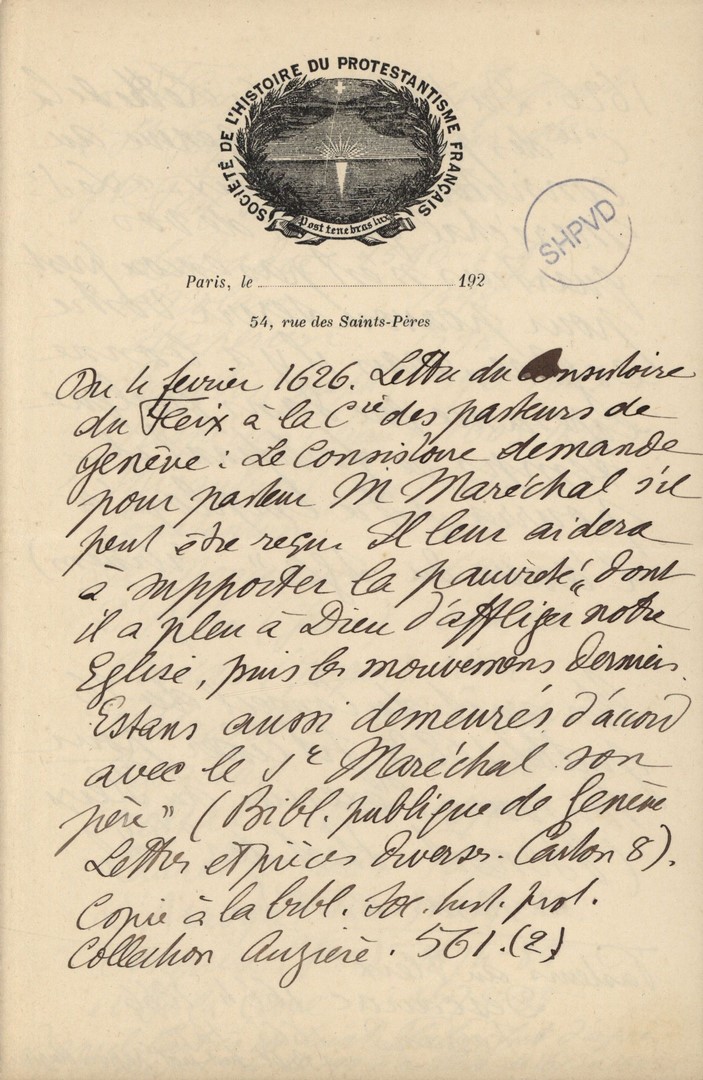 SOCIÉTÉ DE L'HISTOIRE DU PROTESTANTISME FRANÇAIS
Post tenebras lux
SHPVD
Paris, le 192
54, rue des Saints-Pères
Du 4 fevrier 1626. Lettre du Consistoire
du Fleix à la Cie des pasteurs de
Genève : Le Consistoire demande
pour pasteur M Maréchal s'il
peut être reçu. Il leur aidera
à supporter la pauvreté "dont
il a pleu à Dieu d'affliger notre
Eglise, puis les mouvemens derniers.
Estans aussi demeurés d'acord
avec le Sr Maréchal son
père" (Bibl. publique de Genève
Lettres et pièces diverses. Carton 8).
Copie à la bibl. Soc. hist. prot.
Collection Auzière. 561.(2)